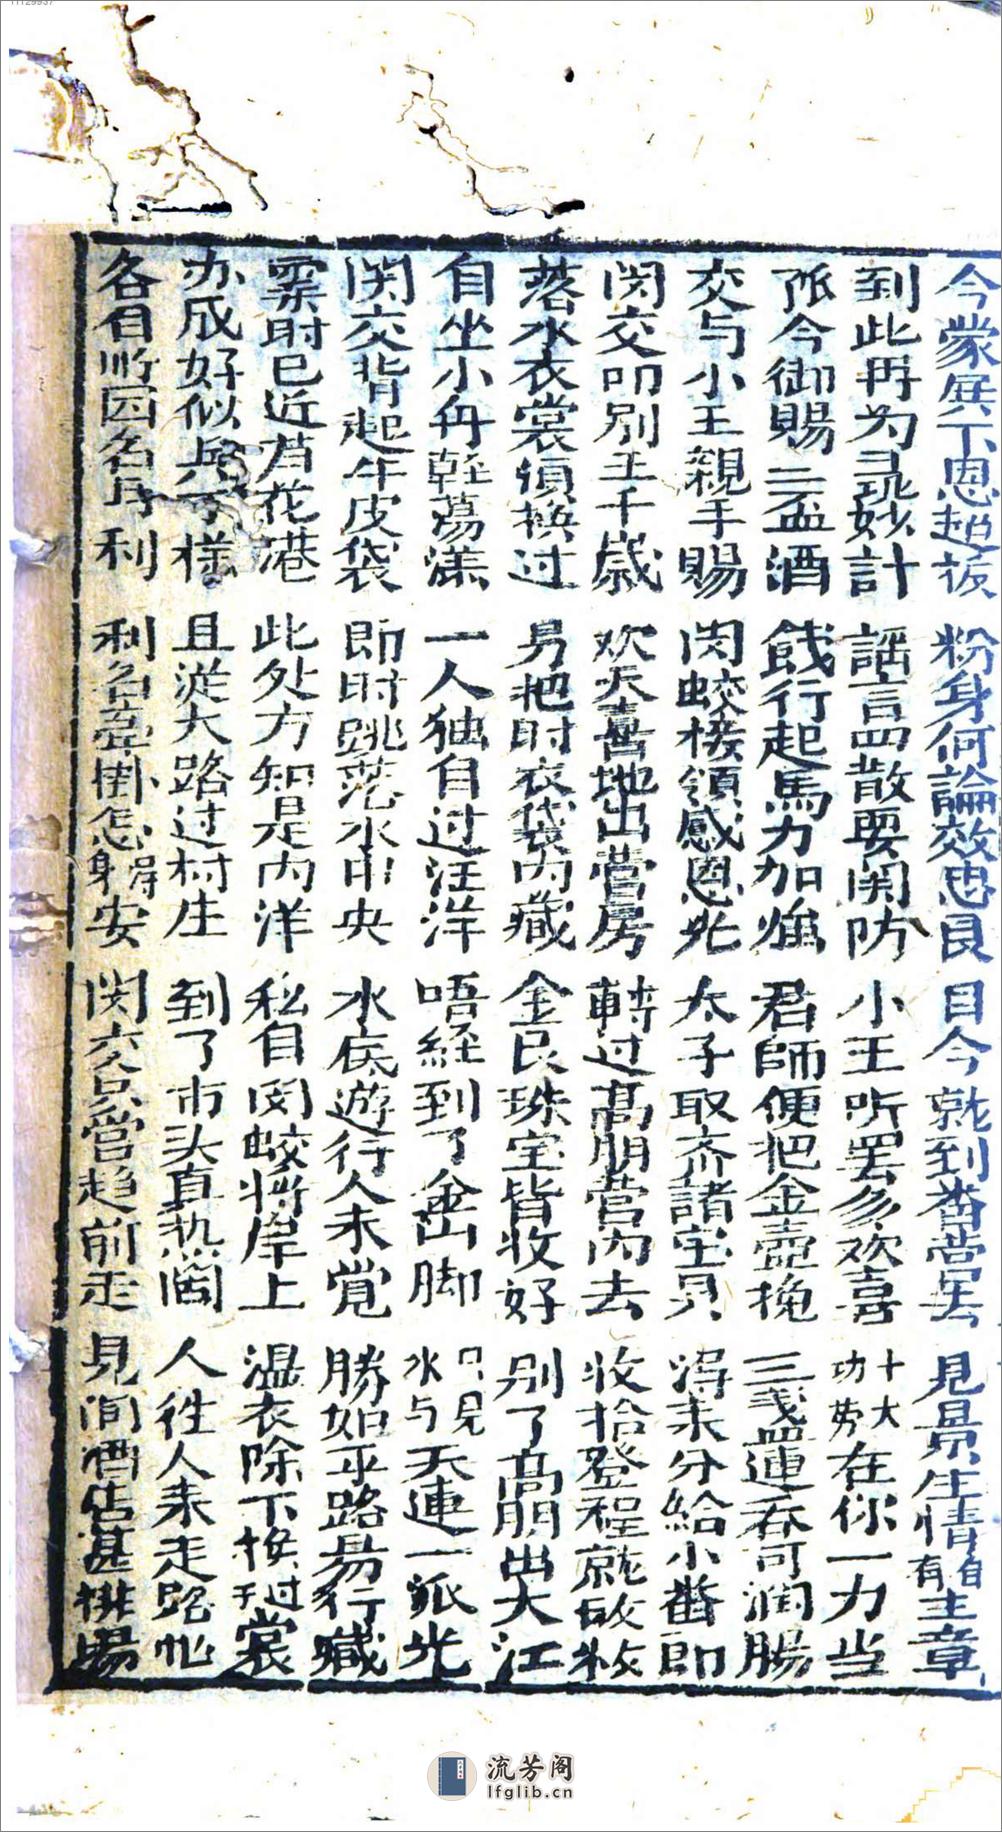 今蒙殿下恩超拔 粉身何論效忠良 目今就到番营罢 見景生情自有主章
到此再为尋妙計 謡言四散要関防 小王听罢多欢喜 十大功势在你一力当
即今御賜三盃酒 餞行起馬力加強 君師便把金壺挽 三盞連吞可润腸
交与小王親手賜 閔蛟接領感恩光 太子取齐諸宝貝 淂来分給小番即
関交叩别王千歲 欢天喜地出营房 轉过髙朋营内去 收拾登程就敢放
落水衣裳須換过 另把时衣袋内藏 金艮珠宝皆收好 别了髙朋出大江
自坐小舟輕蕩漾 一人独自过汪洋 唔經到了金山脚 只見水与天連一派光
関交背起牛皮袋 即时跳落水中央 水底遊行人未覚 勝如平路易行藏
霎时已近芦花港 此处方知是内洋 私自閔蛟将岸上 温衣除下換过干裳
办成好似兵丁様 且淀大路过村庄 到了市头真热闹 人徃人来走路忙
各自所因名与利 利名牽掛怎得身安 関交只當趋前走 見间酒店甚排場
流芳阁
lfglib.cn
11129937